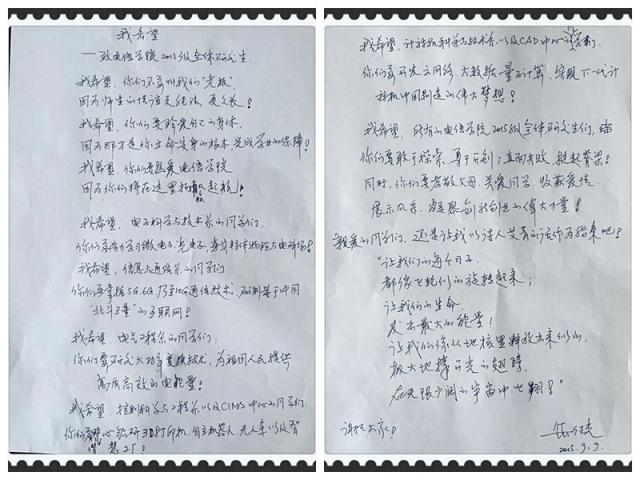 我希望
——致电信学院2015级全体研究生
我希望，你们不要叫我们"老板"
因为师生的情谊更纯洁，更久长！
我希望，你们要珍爱自己的身体，
因为那才是你立命安身的根本，完成学业的保障！
我希望，你们要热爱电信学院
因为你们将在这里扬帆起航！
我希望，电子科学与技术系的同学们，
你们要学习微电子、光电子、半导体物理与电磁场！
我希望，信息与通信系的同学们，
你们要掌握5G、6G乃至10G通信技术，研制基于中国
"北斗卫星"的互联网！
我希望，电气工程系的同学们：
你们要研究大功率变换技术，为祖国人民提供
高质高效的电能量！
我希望，控制科学与工程系以及CIMS中心的同学们，
你们要精心钻研3D打印机、自主机器人、无人车以及智
慧工厂！
我希望，计算机科学与技术系以及CAD中心的学子们，
你们要研究云网络、大数据、量子计算，实现下一代计
算机中国制造的伟大梦想！
我希望，所有的电信学院2015级全体研究生们，
你们要敢于探索、勇于创新；直面失败，挺起脊梁！
同时，你们要孝敬父母、关爱同学、收获爱情、
展示风采，凝聚创新创造的伟大力量！
亲爱的同学们，还是让我以诗人艾青的诗作为结束吧！
"让我们的每个日子，
都像飞轮似的旋转起来；
让我们的生命
发出最大的能量！
让我们像从地核里释放出来似的，
极大地撑开光的翅膀，
在无限广阔的宇宙中飞翔！"
谢谢大家！
2015.9.9.